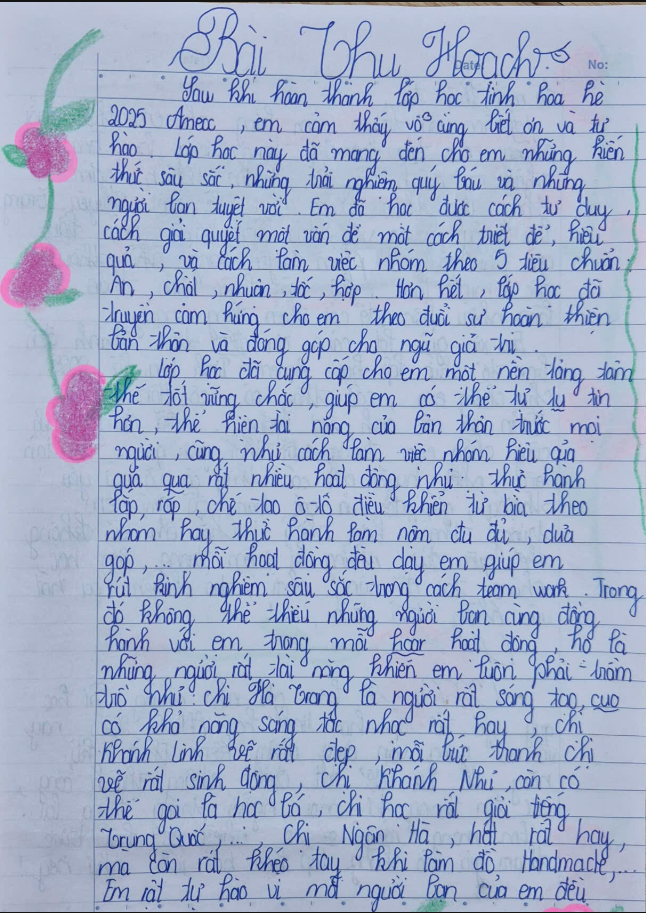 Bài Thu Hoạch
Date: No:
Sau khi hoàn thành lớp học tinh hoa hè
2025 Ameec, em cảm thấy vô cùng biết ơn và tự
hào. Lớp học này đã mang đến cho em những kiến
thức sâu sắc, những trải nghiệm quý báu và những
người bạn tuyệt vời. Em đã học được cách tư duy,
cách giải quyết một vấn đề một cách triệt để, hiệu
quả, và cách làm việc nhóm theo 5 tiêu chuẩn
An, chất, nhuần, tốc, hợp. Hơn hết, lớp học đã
truyền cảm hứng cho em theo đuổi sự hoàn thiện
bản thân và đóng góp cho ngũ giả trị.
Lớp học đã cung cấp cho em một nền tảng tâm
thế tốt vững chắc, giúp em có thể tự tụ tin
hơn, thể hiện tài năng của bản thân trước mọi
người, cũng như cách làm việc nhóm hiệu qủa
quả qua rất nhiều hoạt động như thực hành
lắp, rắp, chế tạo ô tô điều khiển từ bìa theo
nhóm hay thực hành làm nộm đu đủ, dưa
góp,... mỗi hoạt động đều dạy em giúp em
rút kinh nghiệm sâu sắc trong cách team work. Trong
đó không thể thiếu những người bạn cùng đồng
hành với em trong mỗi hoạr hoạt động, họ là
những người rất tài năng khiến em luôn phải trầm
trồ như: chị Hà Trang là người rất sáng tạo, cuo
có khả năng sáng tác nhạc rất hay, chị
Khánh Linh vẽ rất đẹp, mỗi bức thanh chị
vẽ rất sinh động, chị Khánh Như, còn có
thể gọi là học bá, chị học rất giỏi tiếng
Trung Quốc.... Chị Ngân Hà, hát rất hay,
mà còn rất khéo tay khi làm đồ Handmade,...
Em rất tự hào vì mỗi người bạn của em đều